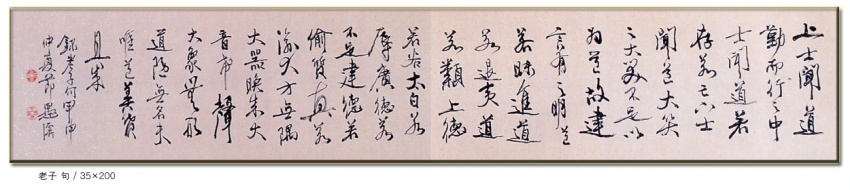 上士聞道
勤而行之中
士聞道若
存若亡下士
聞道大笑
之不笑不足以
為道故建
言有之明道
若昧進道
若退夷道
若纇上德
若谷太白若
辱廣德若
不足建德若
偷質真若
渝大方無隅
大器晚成大
音希聲
大象無形
道隱無名夫
唯道善貸
且成
錄老子句甲申
仲夏節
老子 句 / 35×200